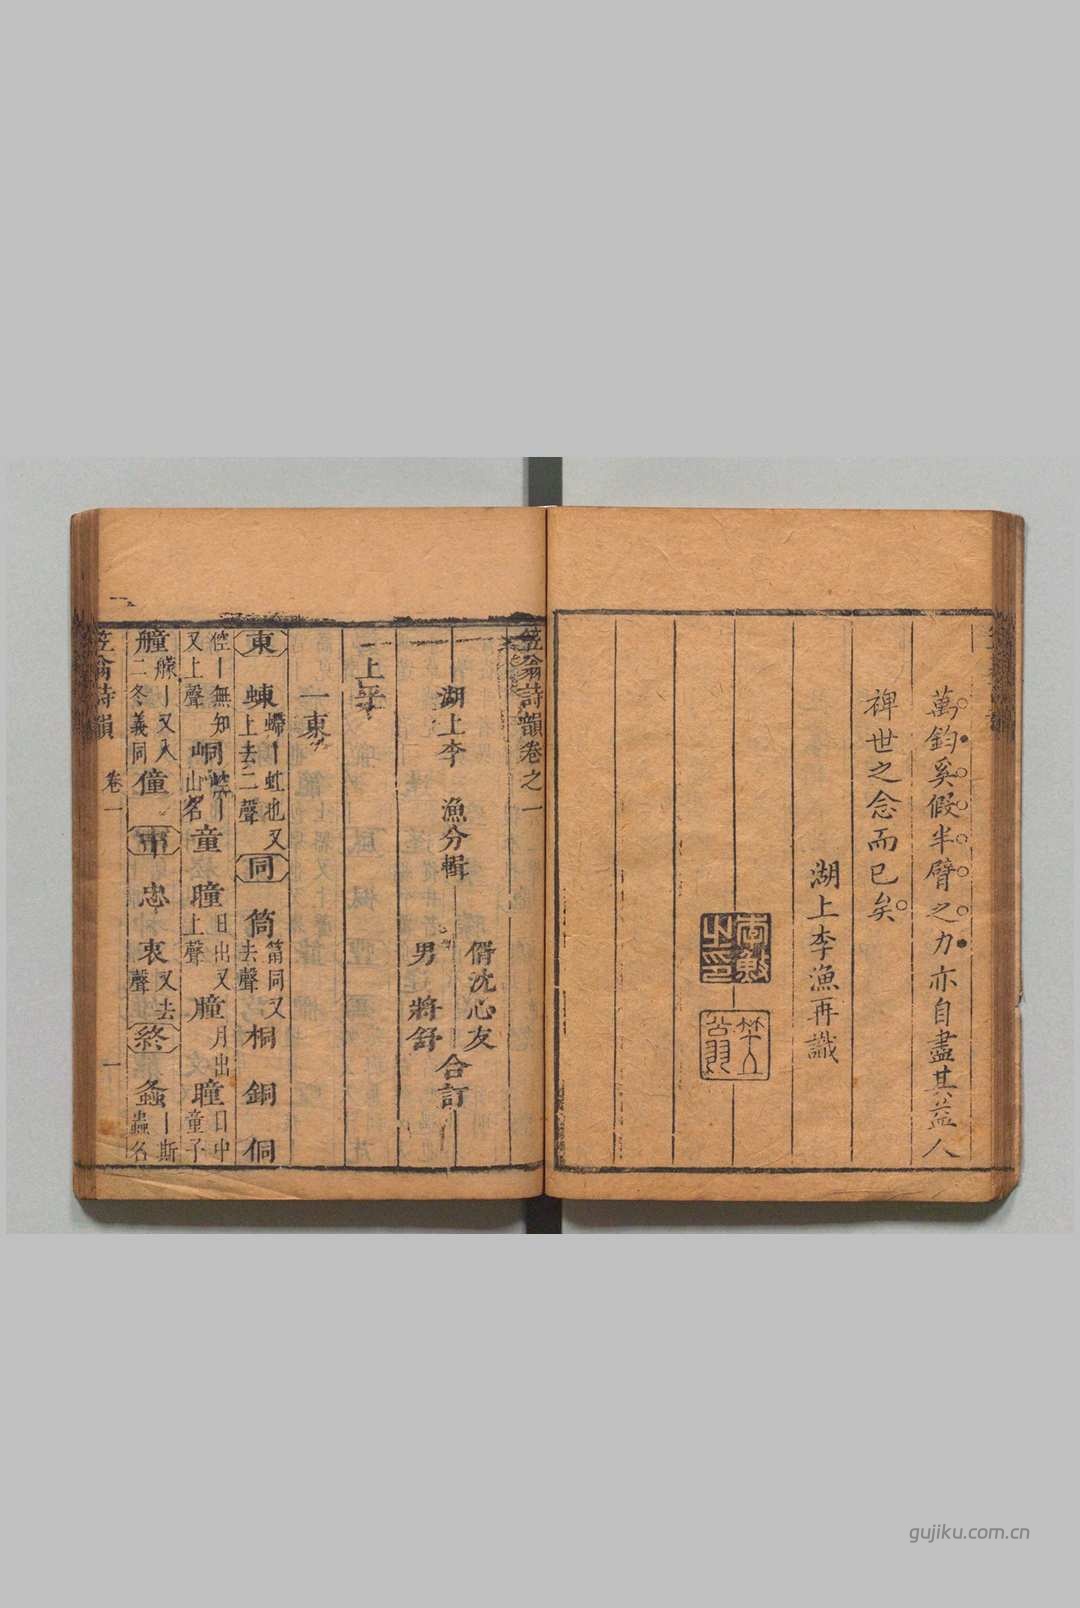 萬鈞奚假半臂之力亦自盡其益人
裨世之念而已矣
湖上李漁再識
笠翁
笠翁詩韻卷之一
湖上李 漁分輯
壻沈心友
男 將舒
合訂
上平
一東
東 蝀 蝃｜虹也又上去二聲 同 筒 筩同又去聲 桐 銅 侗
倥｜無知又上聲 峒 崆｜山名 童 曈 日出又上聲 朣 月出 瞳 目中童子
艟 艨｜又入二冬義同 僮 中 忠 衷 又去聲 終 螽 ｜斯蟲名
笠翁詩韻 卷一 一
gujiku.com.cn